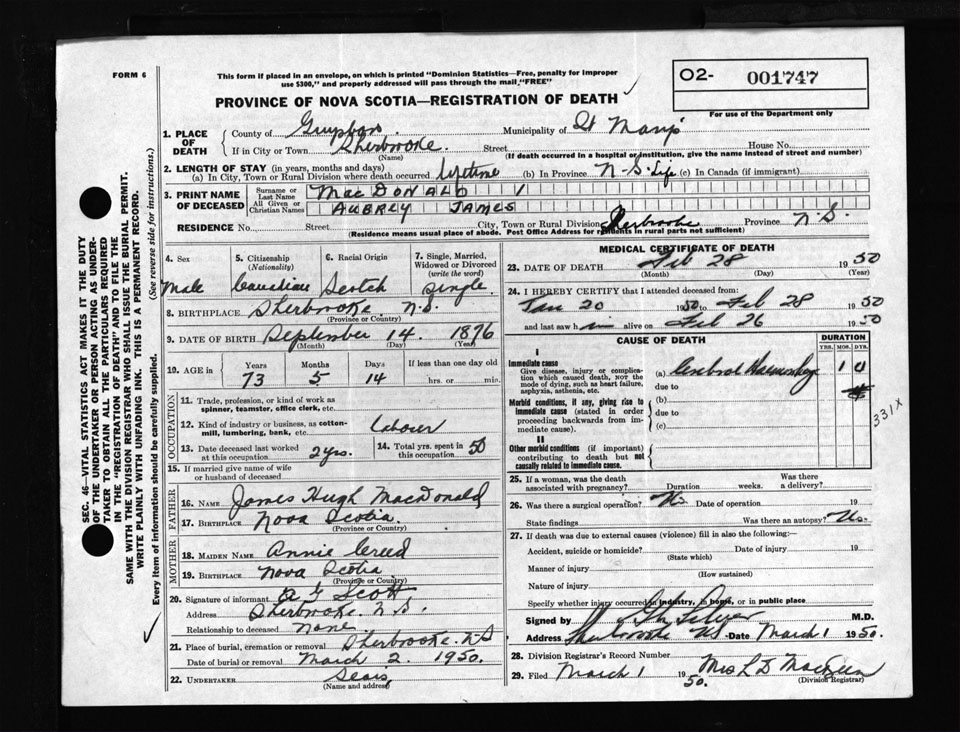 FORM 6
This form if placed in an envelope, on which is printed "Dominion Statistics—Free, penalty for improper
use $300," and properly addressed will pass through the mail "FREE"
O2- 001747
PROVINCE OF NOVA SCOTIA—REGISTRATION OF DEATH
For use of the Department only
1. PLACE OF DEATH
County of Municipality of St Mary's
If in City or Town Sherbrooke. Street House No.
(Name) (If death occurred in a hospital or institution, give the name instead of street and number)
2. LENGTH OF STAY (in years, months and days)
(a) In City, Town or Rural Division where death occurred lifetime (b) In Province N-S. Life (c) In Canada (if immigrant)
3. PRINT NAME OF DECEASED
Surname or Last Name MACDONALD
All Given or Christian Names AUBREY JAMES
RESIDENCE No. Street City, Town or Rural Division Sherbrooke Province N.S.
(Residence means usual place of abode. Post Office Address for residents in rural parts not sufficient)
4. Sex Male
5. Citizenship (Nationality) Canadian
6. Racial Origin Scotch
7. Single, Married, Widowed or Divorced (write the word) single
8. BIRTHPLACE Sherbrooke N.S.
(Province or Country)
9. DATE OF BIRTH September 14. 1876
(Month) (Day) (Year)
10. AGE in Years Months Days If less than one day old
73 5 14 hrs. or min.
OCCUPATION
11. Trade, profession, or kind of work as
spinner, teamster, office clerk, etc.
12. Kind of industry or business, as cotton-
mill, lumbering, bank, etc. Labour
13. Date deceased last worked at this occupation 2 yrs.
14. Total yrs. spent in this occupation 50
15. If married give name of wife
or husband of deceased
FATHER
16. NAME James Hugh MacDonald
17. BIRTHPLACE Nova Scotia.
(Province or Country)
MOTHER
18. MAIDEN NAME Annie Creed
19. BIRTHPLACE Nova Scotia
(Province or Country)
20. Signature of informant Scott
Address Sherbrooke. N.S.
Relationship to deceased None
21. Place of burial, cremation or removal Sherbrooke. NS
Date of burial or removal March 2. 1950.
22. UNDERTAKER Sears
(Name and address)
MEDICAL CERTIFICATE OF DEATH
23. DATE OF DEATH Feb 28 1950
(Month) (Day) (Year)
24. I HEREBY CERTIFY that I attended deceased from:
Jan 20 1950 to Feb 28 1950
and last saw h im alive on Feb 26 1950
CAUSE OF DEATH
DURATION
YRS. MOS. DYS.
I
Immediate cause
Give disease, injury or complica-
tion which caused death, not the
mode of dying, such as heart failure,
asphyxia, asthenia, etc.
(a) Cerebral Haemorrhage 1 0
due to
Morbid conditions, if any, giving rise to
immediate cause (stated in order
proceeding backwards from im-
mediate cause).
(b)
due to
(c)
II
Other morbid conditions (if important)
contributing to death but not
causally related to immediate cause.
331X
25. If a woman, was the death
associated with pregnancy? Duration weeks. Was there a delivery?
26. Was there a surgical operation? No Date of operation 19
State findings Was there an autopsy? No.
27. If death was due to external causes (violence) fill in also the following:—
Accident, suicide or homicide? Date of injury 19
(State which)
Manner of injury
(How sustained)
Nature of injury
Specify whether injury occurred in industry, in home, or in public place
Signed by M.D.
Address Sherbrooke NS Date March 1 1950.
28. Division Registrar's Record Number
29. Filed March 1 1950. Mrs L D
(Division Registrar)
SEC. 46—VITAL STATISTICS ACT MAKES IT THE DUTY
OF THE UNDERTAKER OR PERSON ACTING AS UNDER-
TAKER TO OBTAIN ALL THE PARTICULARS REQUIRED
IN THE "REGISTRATION OF DEATH" AND TO FILE THE
SAME WITH THE DIVISION REGISTRAR WHO SHALL ISSUE THE BURIAL PERMIT.
WRITE PLAINLY WITH UNFADING INK. THIS IS A PERMANENT RECORD.
(See reverse side for instructions.)
Every item of information should be carefully supplied.